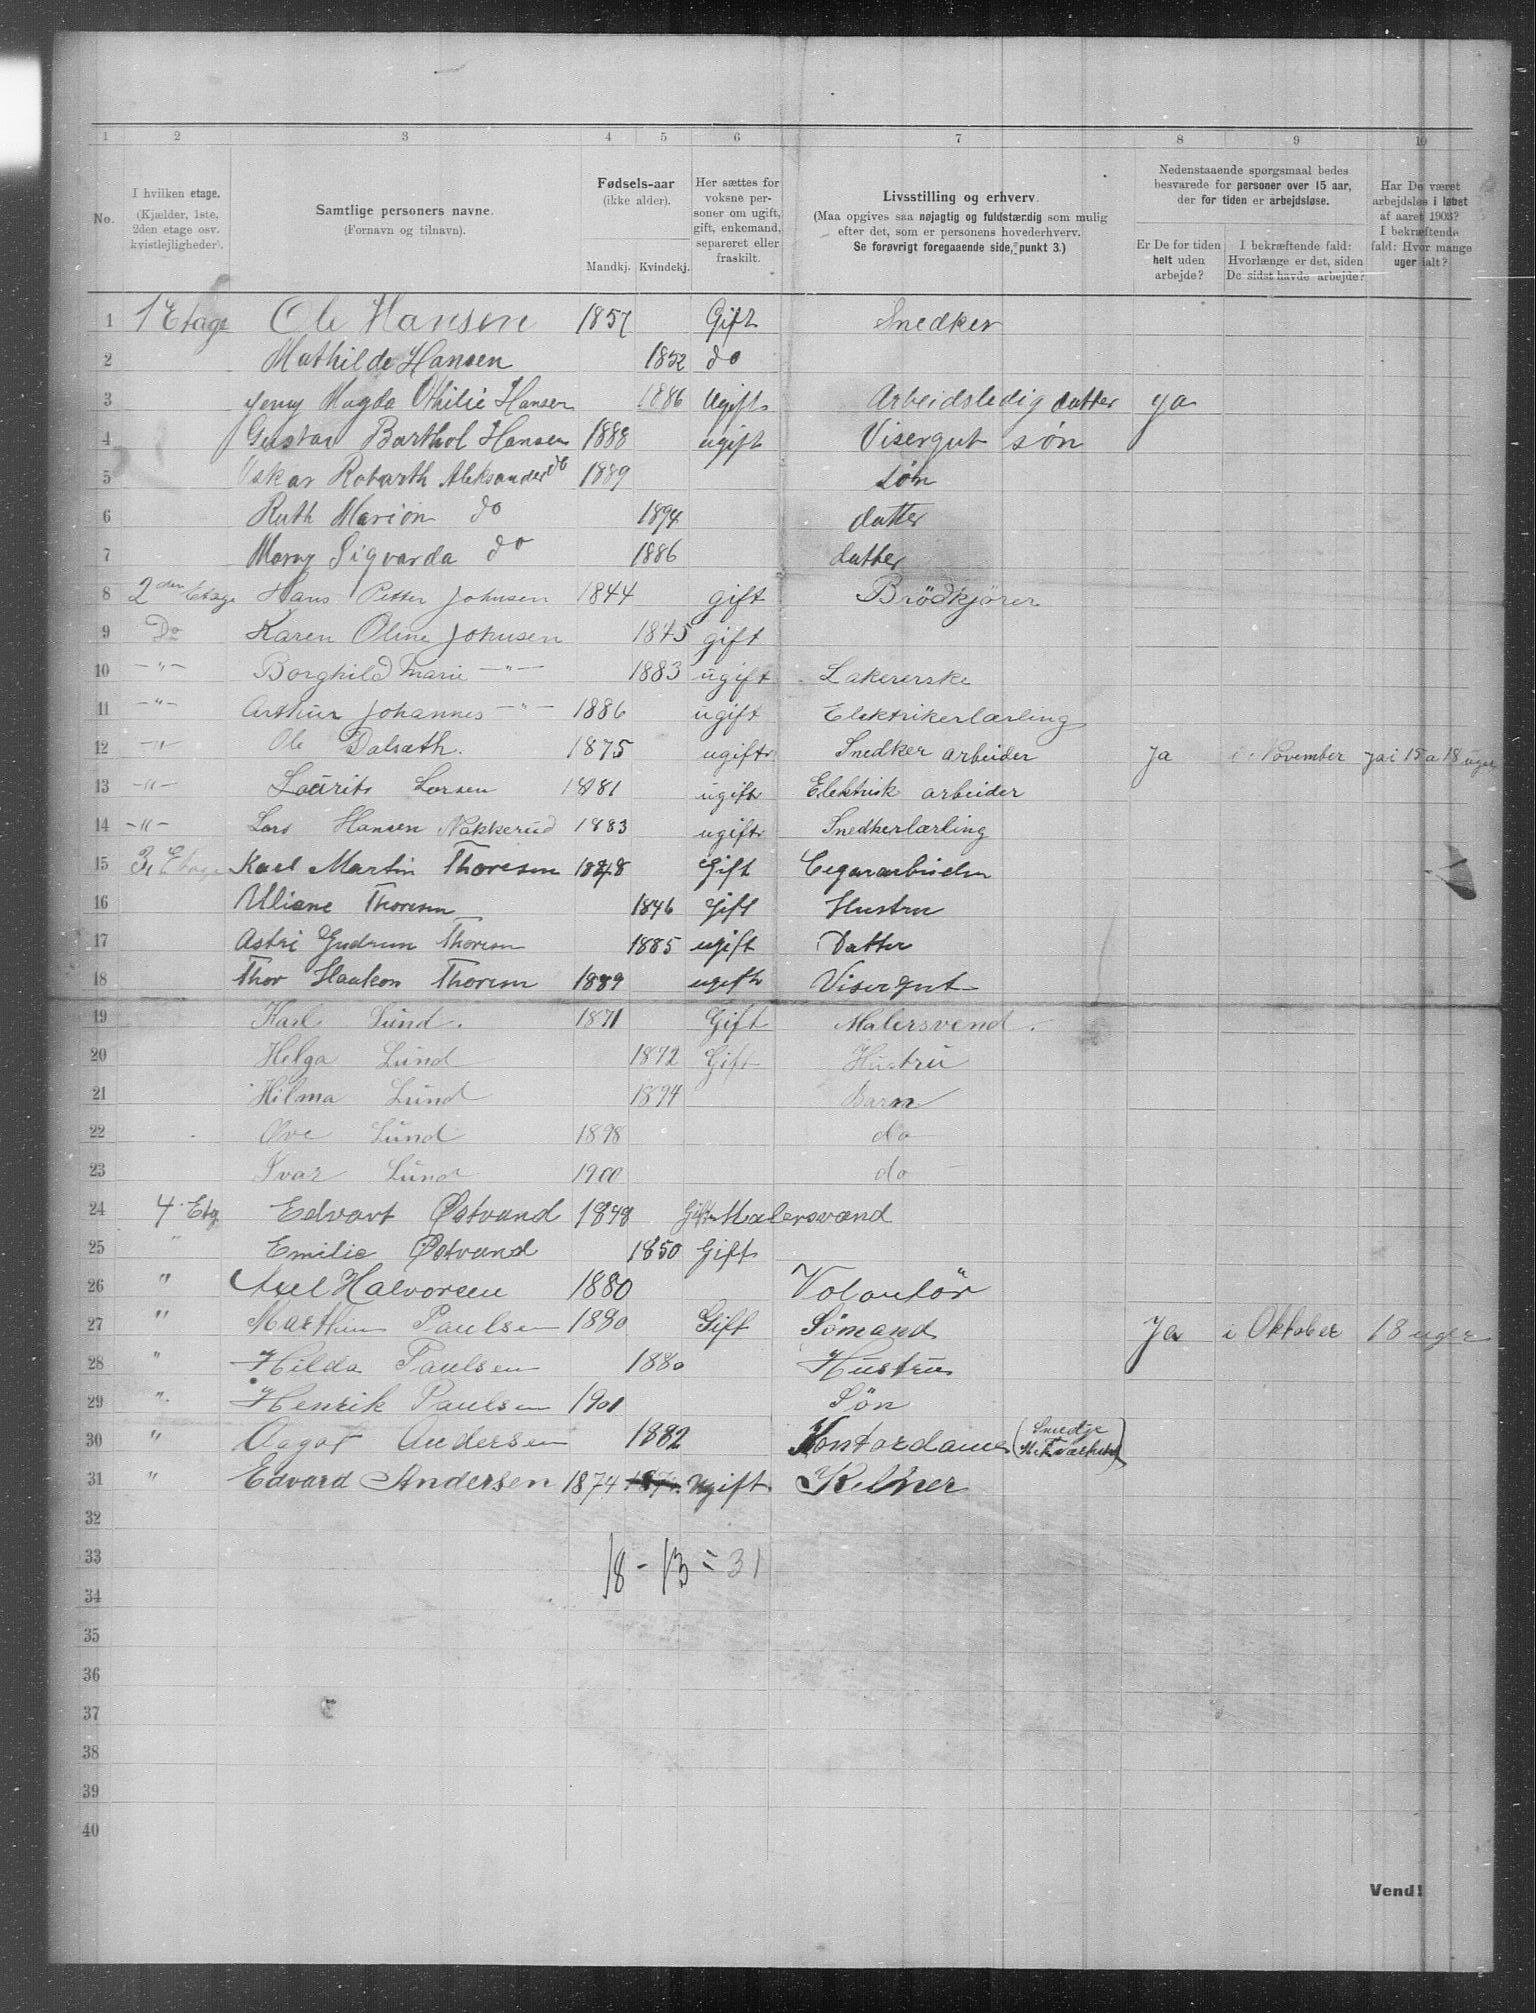 1 2 3 4 5 6 7 8 9 10
No.
I hvilken etage.
(Kjælder, 1ste,
2den etage osv.
kvistlejligheder).
Samtlige personers navne.
(Fornavn og tilnavn).
Fødsels-aar
(ikke alder).
Mandkj. Kvindekj.
Her sættes for
voksne per-
soner om ugift,
gift, enkemand,
separeret eller
fraskilt.
Livsstilling og erhverv.
(Maa opgives saa nøjagtig og fuldstærdig som mulig
efter det, som er personens hovederhverv.
Se forøvrigt foregaaende side, punkt 3.)
Nedenstaaende spørgsmaal bedes
besvarede for personer over 15 aar,
der for tiden er arbejdsløse.
Er De for tiden
helt uden
arbejde?
I bekræftende fald:
Hvorlænge er det, siden
De sidst havde arbejde?
Har De været
arbejdsløs i løbet
af aaret 1903?
I bekræftende
fald: Hvor mange
uger ialt?
1 1 Etage Ole Hansen 1857 Gift Snedker
2 Mathilde Hansen 1852 do
3 Jenny Magda Othilie Hansen 1886 Ugift Arbeidsledig datter ja
4 Gustav Barthol Hansen 1888 ugift Visergut søn
5 Oskar Robarth Aleksander do 1889 søn
6 Ruth Marion do 1894 datter
7 Marny Sigvarda do 1886 datter
8 2den Etage Hans Petter Johnsen 1844 gift Brödkjører
9 Do Karen Oline Johnsen 1845 gift
10 -"- Borghild Marie -"- 1883 ugift Lakererske
11 -"- Arthur Johannes -"- 1886 ugift Elektrikerlærling
12 -"- Ole Dalsæth. 1875 ugift Snedker arbeider Ja i November ja i 15 a 18 uger
13 -"- Laurits Larsen 1881 ugift Elektrisk arbeider
14 -"- Lars Hansen Nakkerud 1883 ugift Snedkerlærling
15 3 Etage Karl Martin Thoresen 1848 Gift Cigararbeider
16 Uliane Thoresen 1846 Gift Hustru
17 Astri Gudrun Thoresen 1885 ugift Datter
18 Thor Haakon Thoresen 1889 ugift Visergut
19 Karl Lund. 1871 Gift Malersvend.
20 Helga Lund 1872 Gift Hustru
21 Hilma Lund 1894 Barn
22 Ove Lund 1898 do
23 Ivar Lund 1900 do
24 4. Etg Edvart Østvand 1848 Gift Malersvænd
25 " Emilie Østvand 1850 Gift
26 " Axel Halvorsen 1880 Volontör
27 " Marthin Paulsen 1880 Gift Sömand Ja i Oktober 18 uger
28 " Hilda Paulsen 1880 Hustru
29 " Henrik Paulsen 1901 Søn
30 " Aagot Andersen 1882 Kontordame (Smedje
31 " Edvard Andersen 1874 Ugift Kelner
32
33 18 - 13 = 31
34
35
36
37
38
39
40
Vend!